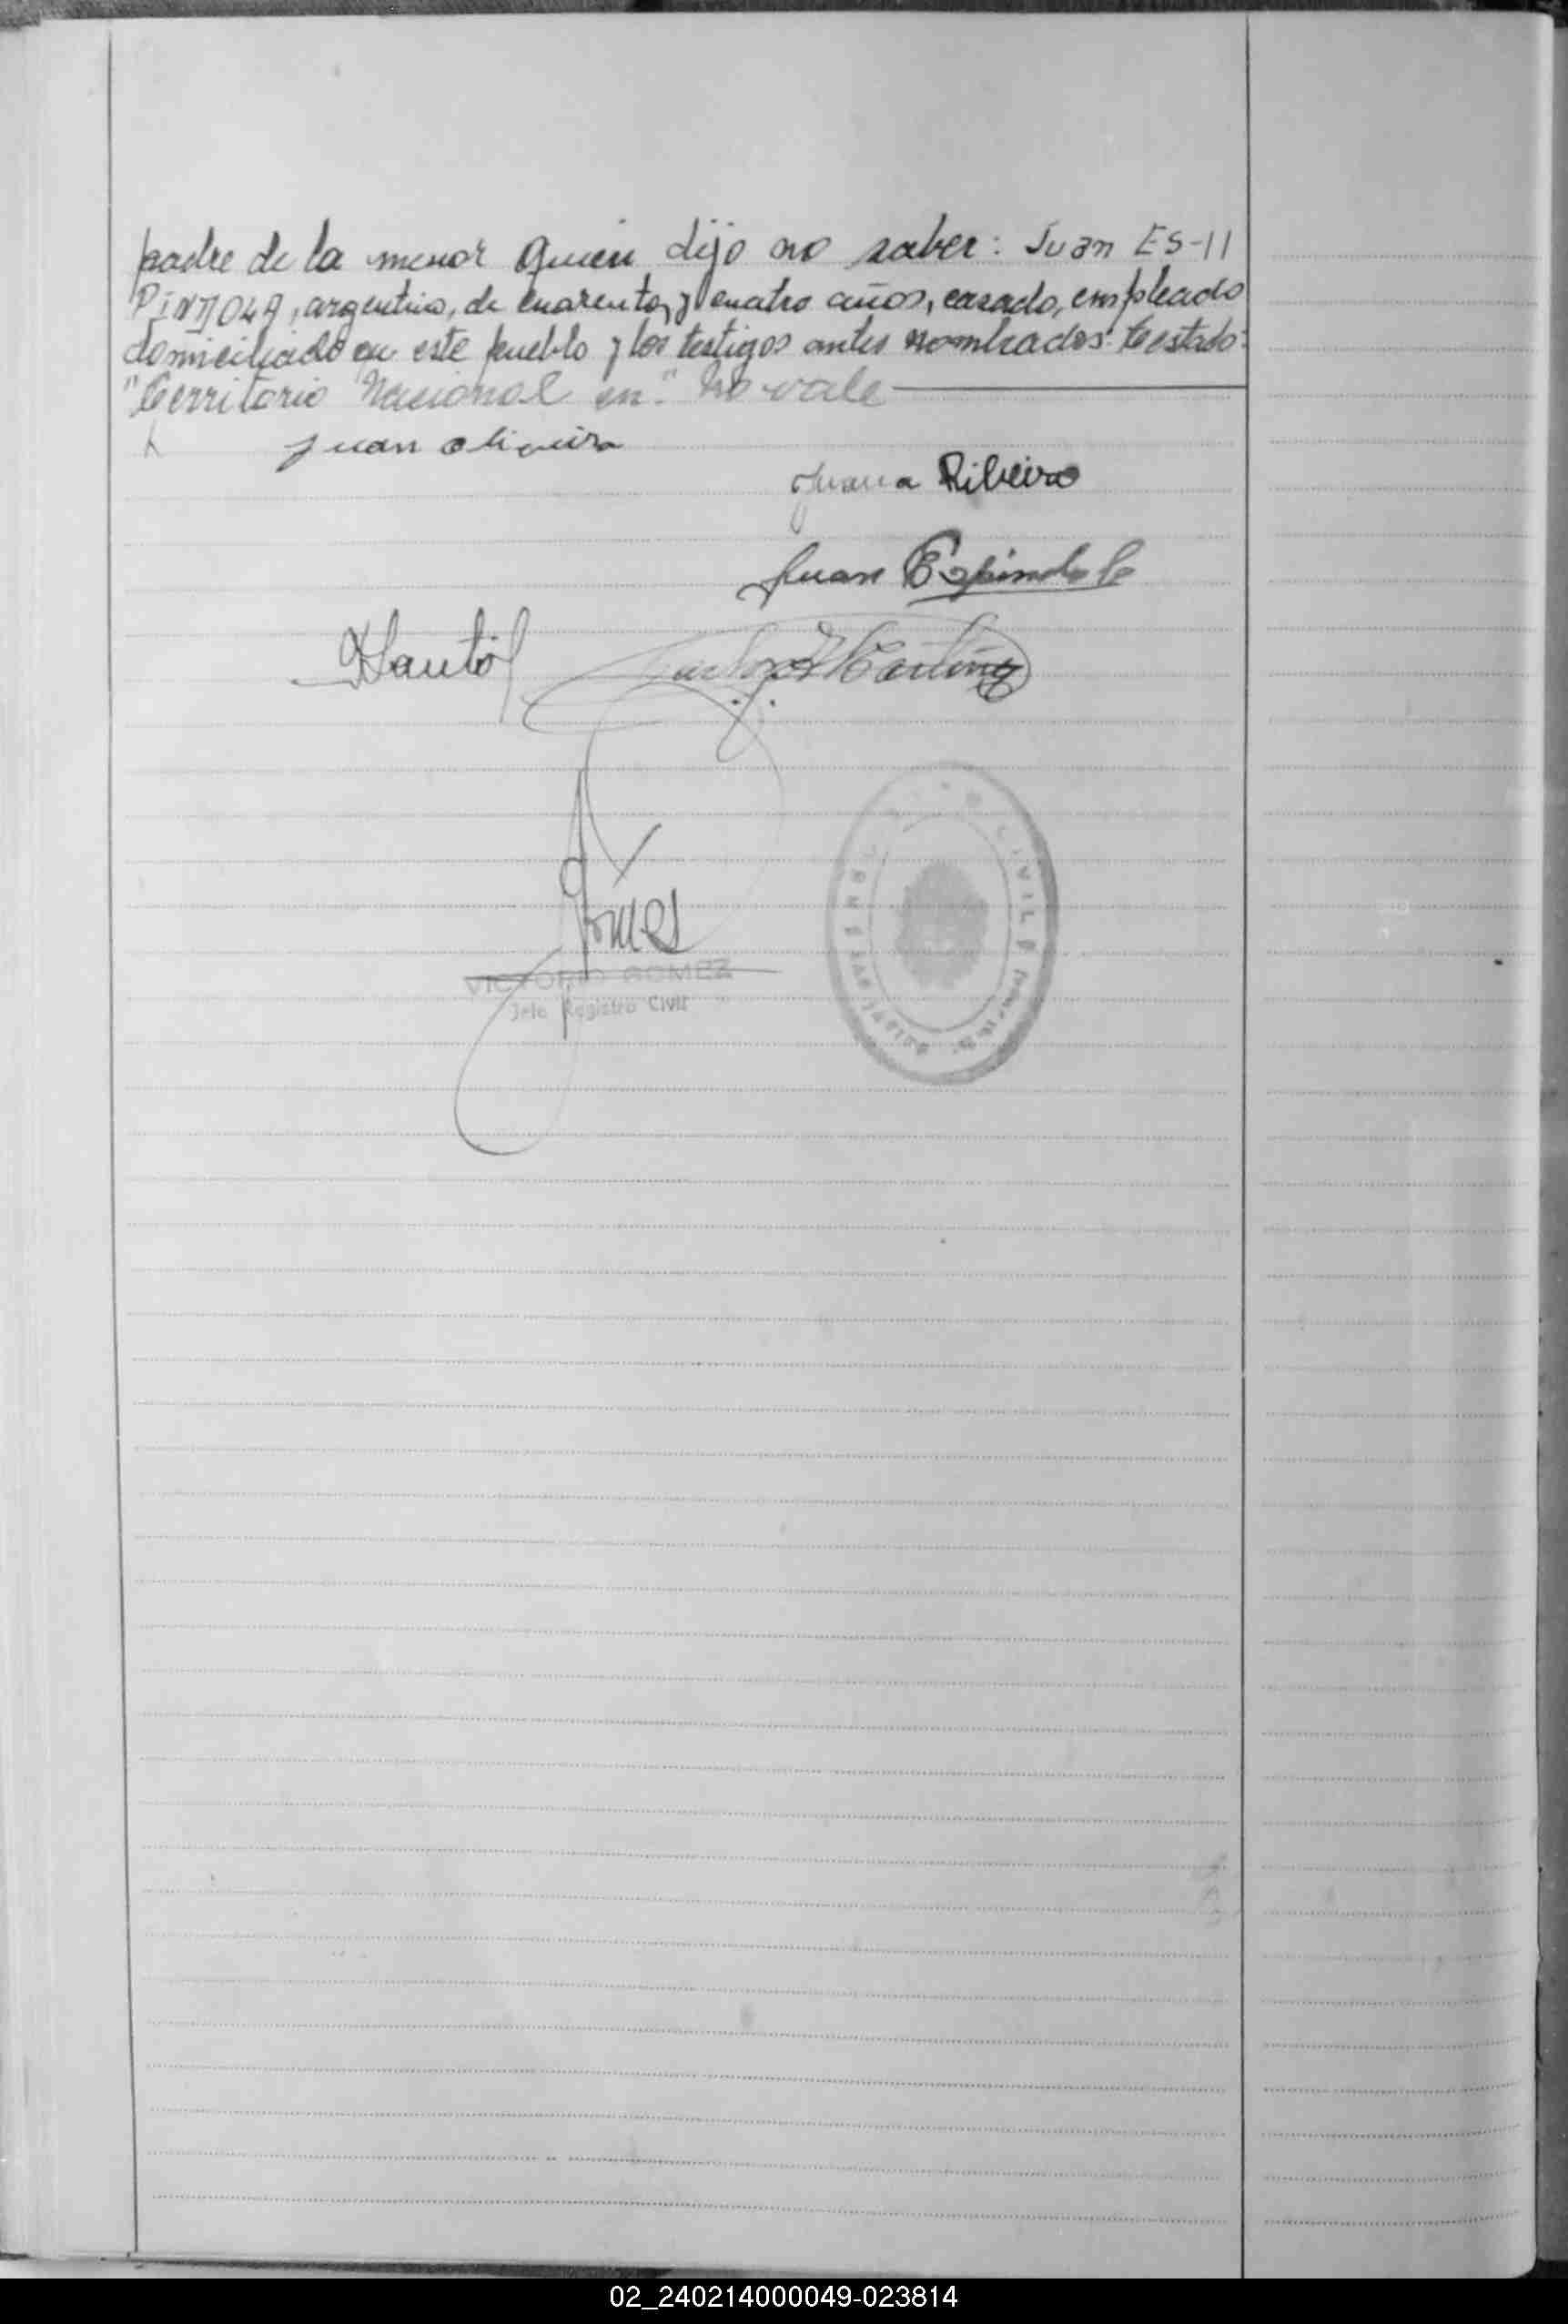 padre de la menor quien dijo no saber: Juan ES-||
PINDOLA, argentino, de cuarenta y cuatro años, casado, empleado
domiciliado en este pueblo y los testigos antes nombrados: testado:
"Territorio Nacional en": no vale
Juan Oliveira
Juana Ribeiro
Juan Espindola
Gomes
VICTORIO GOMEZ
Jefe Registro Civil
CIVIL
SAN JAVIER
02_240214000049-023814